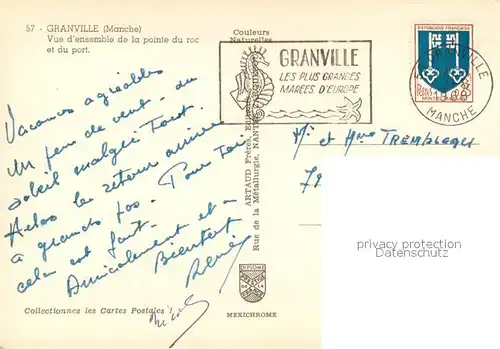 57 - GRANVILLE (Manche)
Vue d'ensemble de la pointe du roc
et du port.
Couleurs
Naturelles
GRANVILLE
LES PLUS GRANDES
MARÉES D'EUROPE
REPUBLIQUE FRANÇAISE
GRANVILLE
MANCHE
Vacances agréables
Un peu de vent - du
soleil malgré tout.
Hélas le retour arrive
à grands pas. Pour toi
cela est fait.
Amicalement et à
Bientôt
M. et Mme TREMBLEAU
ARTAUD Frères, Éditeurs
Rue de la Métallurgie, NANTES
privacy protection
Datenschutz
DIPLOME
PRESTIGE
DE LA
FRANCE
Collectionnez les Cartes Postales
MEXICHROME